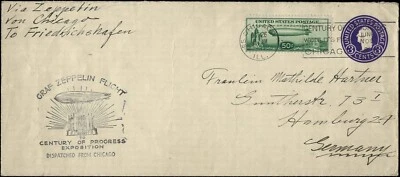 Via Zeppelin
von Chicago
To Friedrichshafen
UNITED STATES POSTAGE
50c
CENTURY OF
CHICAGO
ILL.
UNITED STATES
3 CENTS 3
Fraulein Mathilde Hartner
Güntherstr. 73 I
Hamburg 21
Germany
GRAF ZEPPELIN FLIGHT
CENTURY OF PROGRESS
EXPOSITION
DISPATCHED FROM CHICAGO